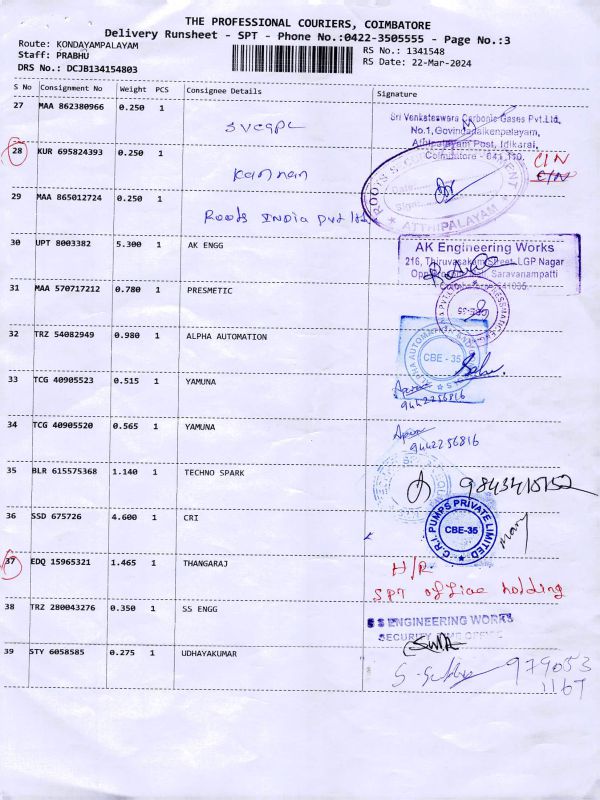 THE PROFESSIONAL COURIERS, COIMBATORE
Delivery Runsheet - SPT - Phone No.:0422-3505555 - Page No.:3
Route: KONDAYAMPALAYAM
Staff: PRABHU
DRS No.: DCJB134154803
RS No.: 1341548
RS Date: 22-Mar-2024
S No Consignment No Weight PCS Consignee Details Signature
27 MAA 862380966 0.250 1
SVCGPL
Sri Venkateswara Carbonic Gases Pvt.Ltd,
No.1, Govindanaikenpalayam,
Atthipalayam Post, Idikarai,
Coimbatore - 641 110.
28 KUR 695824393 0.250 1
Kannan
C/N
C/N
29 MAA 865012724 0.250 1
Roots India Pvt Ltd
ROOTS
Date
Sign
ATTHIPALAYAM
30 UPT 8003382 5.300 1 AK ENGG
AK Engineering Works
216, Thiruvasakam Street, LGP Nagar
Saravanampatti
Coimbatore-641035.
31 MAA 570717212 0.780 1 PRESMETIC
CBE-35
32 TRZ 54082949 0.980 1 ALPHA AUTOMATION
ALPHA AUTOMATION
CBE - 35
33 TCG 40905523 0.515 1 YAMUNA
9442256816
34 TCG 40905520 0.565 1 YAMUNA
9442256816
35 BLR 615575368 1.140 1 TECHNO SPARK
36 SSD 675726 4.600 1 CRI
C.R.I. PUMPS PRIVATE LIMITED
CBE-35
Mary
37 EDQ 15965321 1.465 1 THANGARAJ
H/R
SPT office holding
38 TRZ 280043276 0.350 1 SS ENGG
S S ENGINEERING WORKS
SECURITY TIME OFFICE
39 STY 6058585 0.275 1 UDHAYAKUMAR
979053
1167